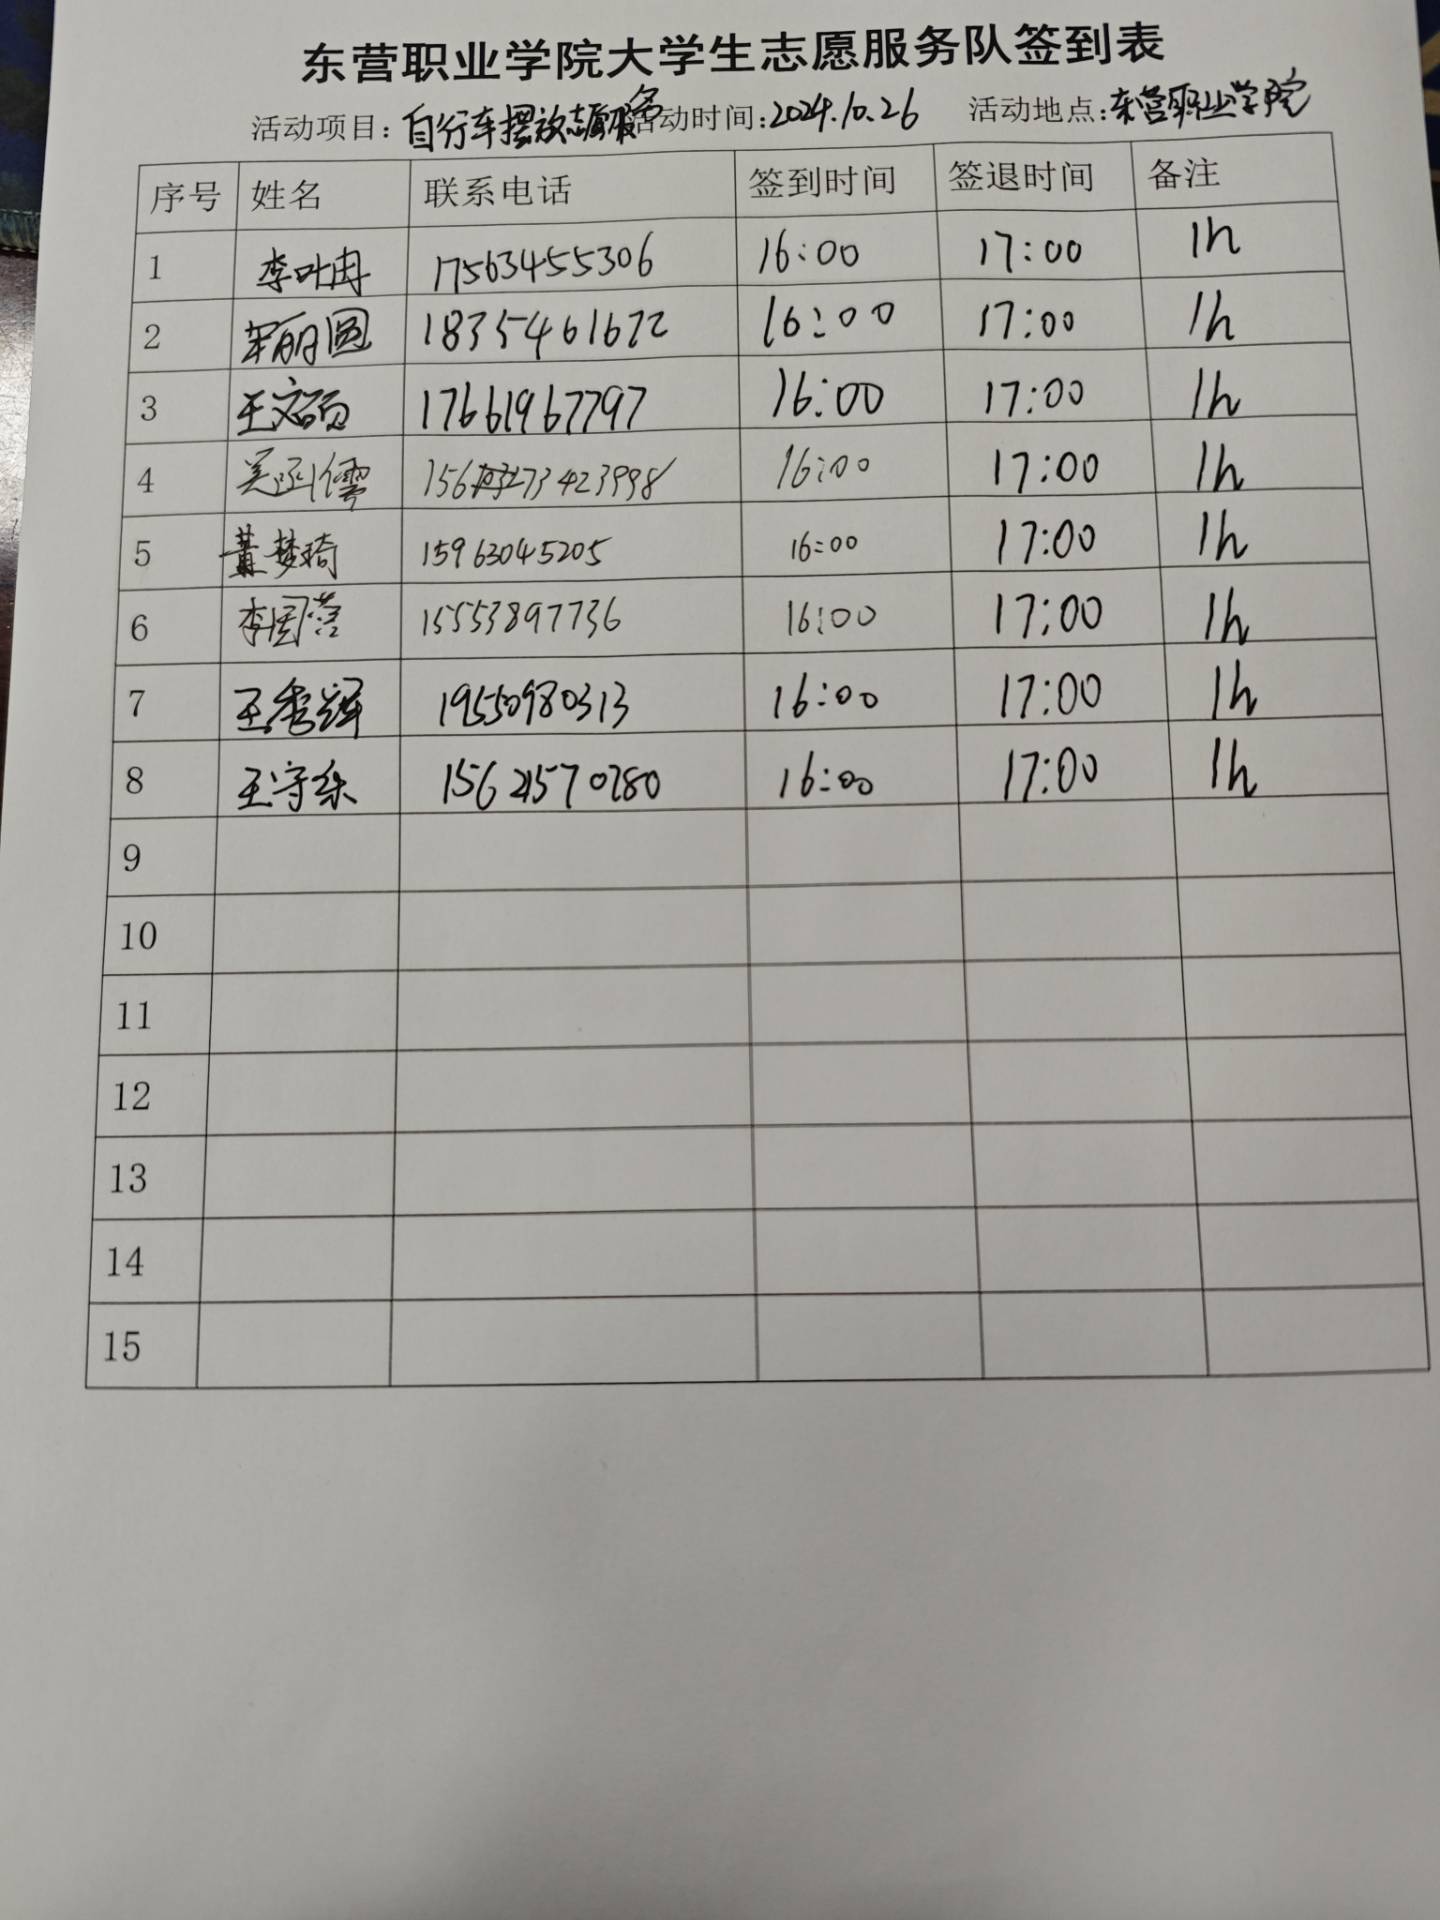 东营职业学院大学生志愿服务队签到表
活动项目：自行车摆放志愿服务 活动时间：2024.10.26 活动地点：东营职业学院
序号 姓名 联系电话 签到时间 签退时间 备注
1 李叶冉 17563455306 16:00 17:00 1h
2 1835461672 16:00 17:00 1h
3 王文硕 17661967797 16:00 17:00 1h
4 16:00 17:00 1h
5 董梦琦 15963045205 16:00 17:00 1h
6 15553897736 16:00 17:00 1h
7 王秀辉 19550980313 16:00 17:00 1h
8 王守乐 16:00 17:00 1h
9
10
11
12
13
14
15